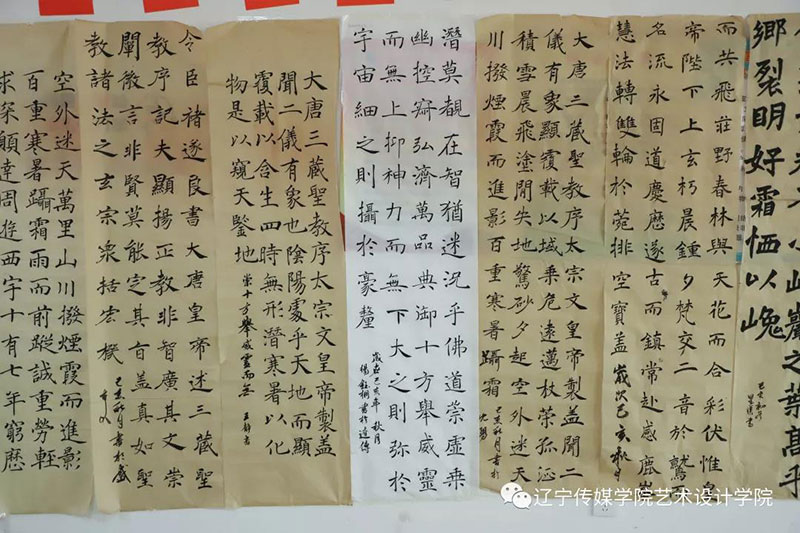 鄉裂明好霜
而共飛莊野春林與天花而合彩伏惟皇
帝陛下上玄朽晨鍾夕梵交二音於鷲
名流永固道慶歷遂古而鎮常赴感鹿
慧法轉雙輪於菀排空寶蓋 歲次己亥秋月
大唐三藏聖教序太宗文皇帝製蓋聞二
儀有象顯覆載以域乘危遠邁杖策孤征
積雪晨飛塗閒失地驚砂夕起空外迷天
川撥煙霞而進影百重寒暑躡霜 己亥秋月書於
潛莫覩在智猶迷況乎佛道崇虛乘
幽控寂弘濟萬品典御十方舉威靈
而無上抑神力而無下大之則弥於
宇宙細之則攝於豪釐
大唐三藏聖教序太宗文皇帝製蓋
聞二儀有象也陰陽處乎天地而顯
覆載以含生四時無形潛寒暑以化
物是以窺天鑒地 崇十方舉威靈而無
令臣褚遂良書大唐皇帝述三藏聖
教序記夫顯揚正教非智廣其文崇
闡微言非賢莫能定其旨蓋真如聖
教諸法之玄宗眾括宏機 己亥秋月書於盛
空外迷天萬里山川撥煙霞而進影
百重寒暑躡霜雨而前蹤誠重勞輕
求深願達周遊西宇十有七年窮歷
辽宁传媒学院艺术设计学院